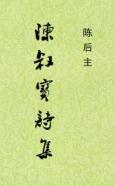 陈后主
陳叔寳詩集